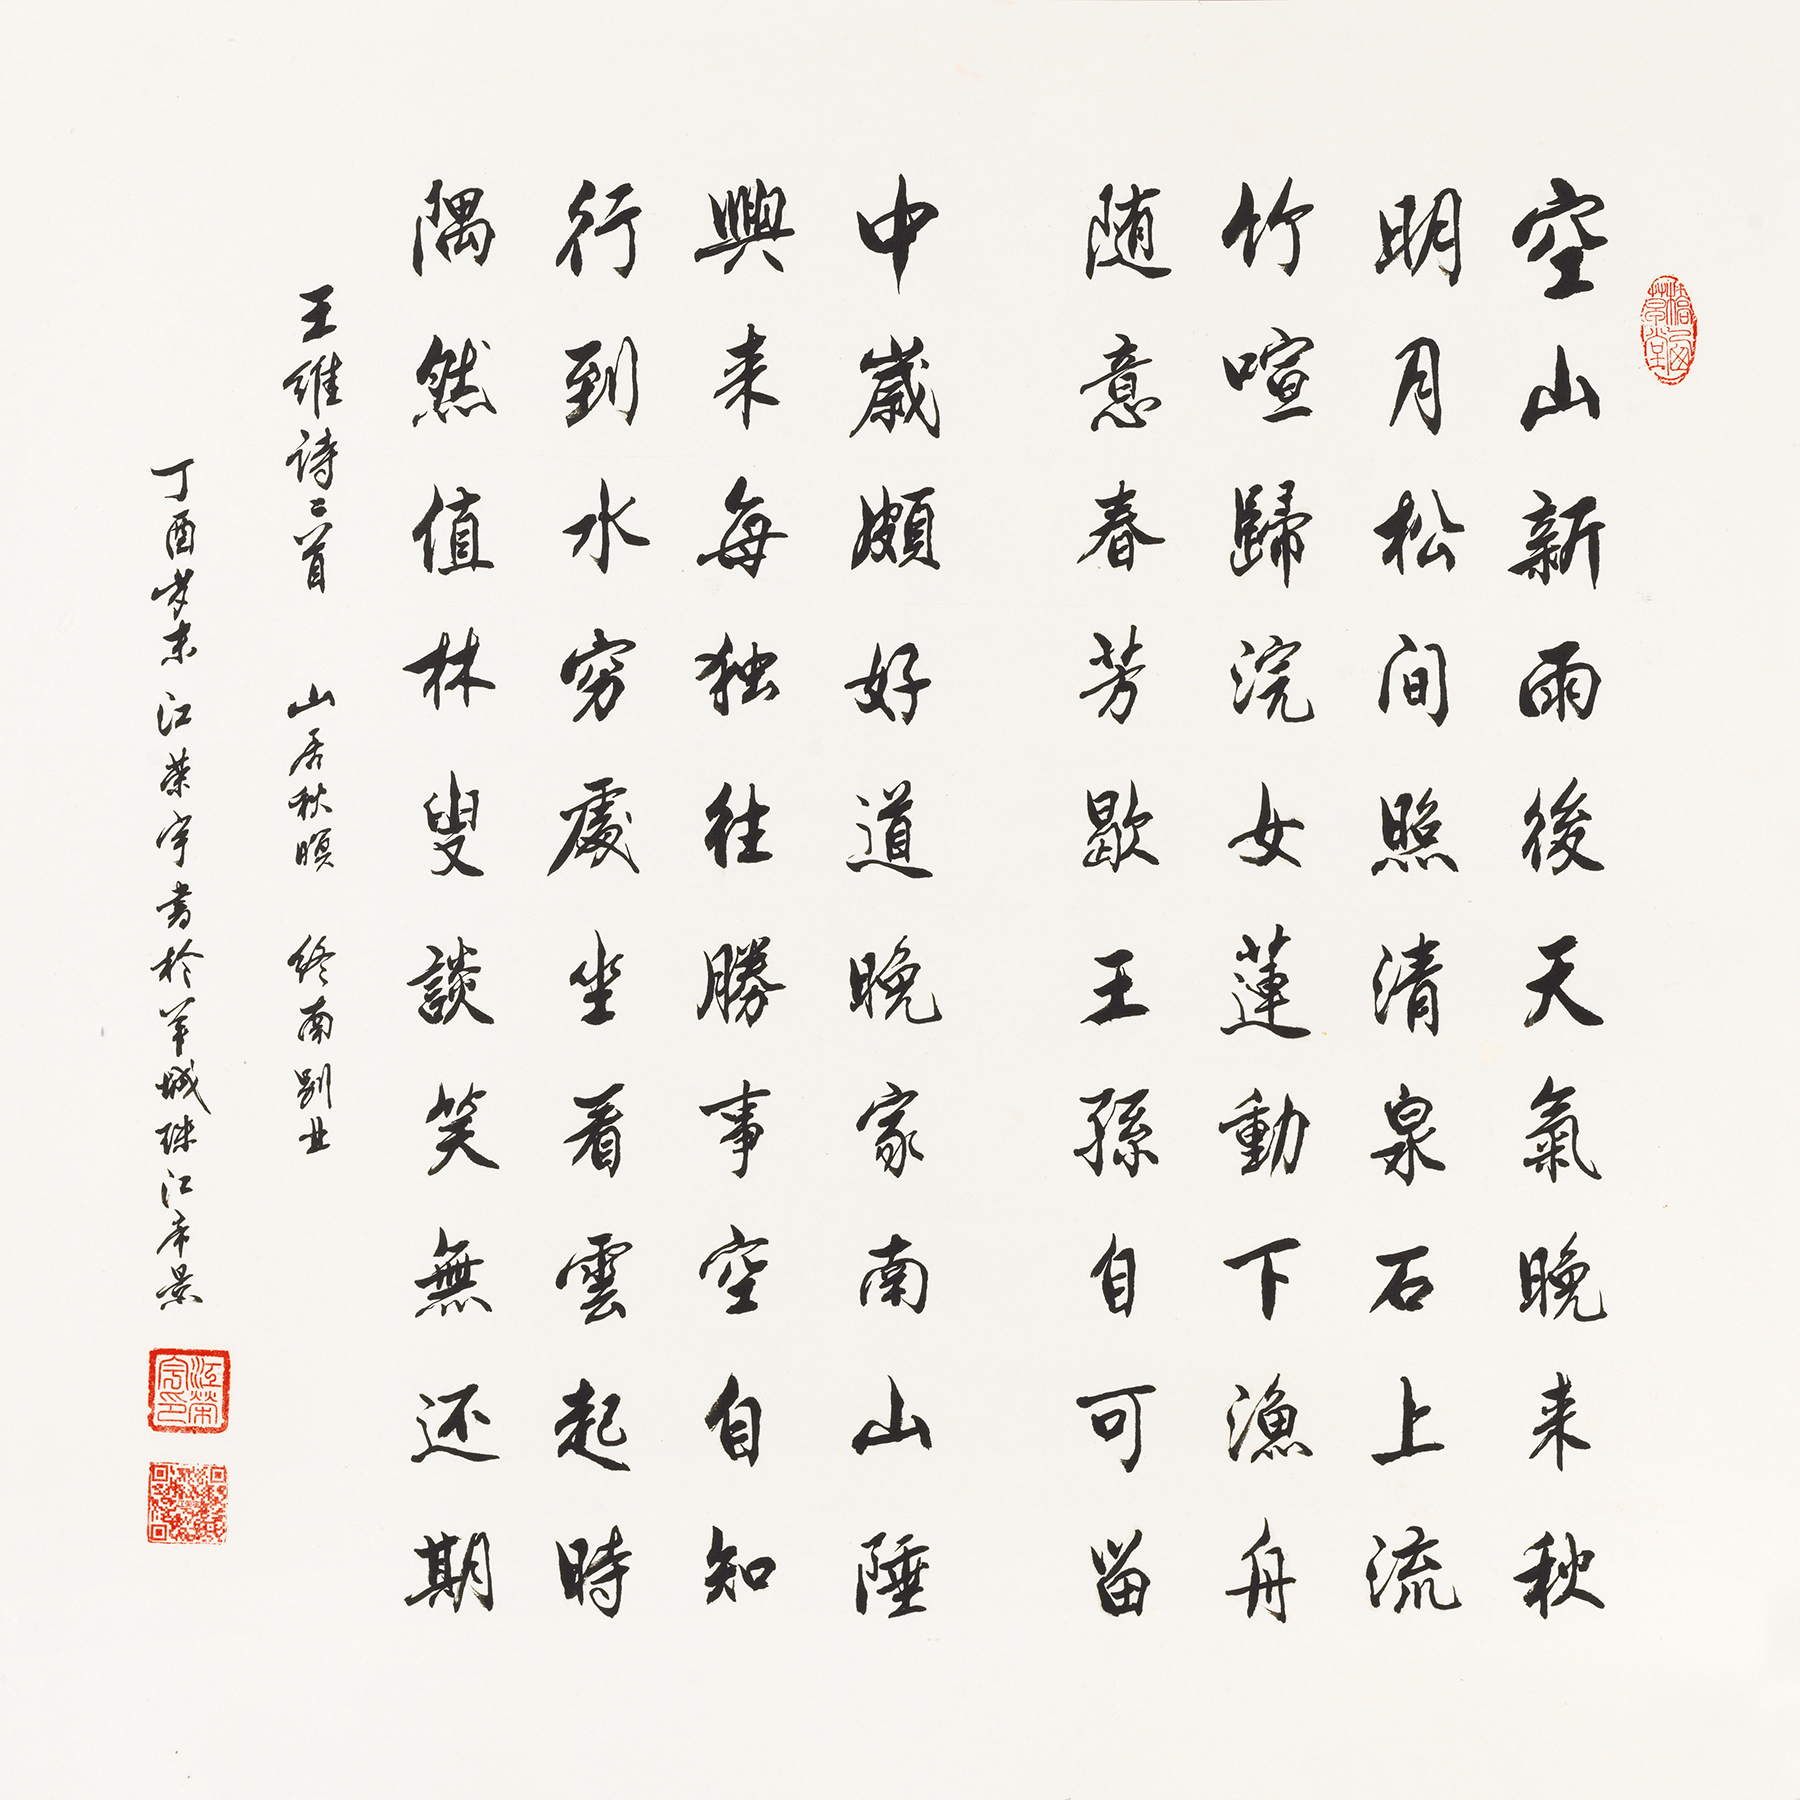 空山新雨後天氣晚来秋
明月松间照清泉石上流
竹喧歸浣女蓮動下漁舟
随意春芳歇王孫自可留
中歲頗好道晚家南山陲
興来每独往勝事空自知
行到水穷處坐看雲起時
隅然值林叟談笑無还期
王维诗二首 山居秋暝 终南别业
丁酉岁末江荣宇书於羊城珠江帝景
江榮宇印